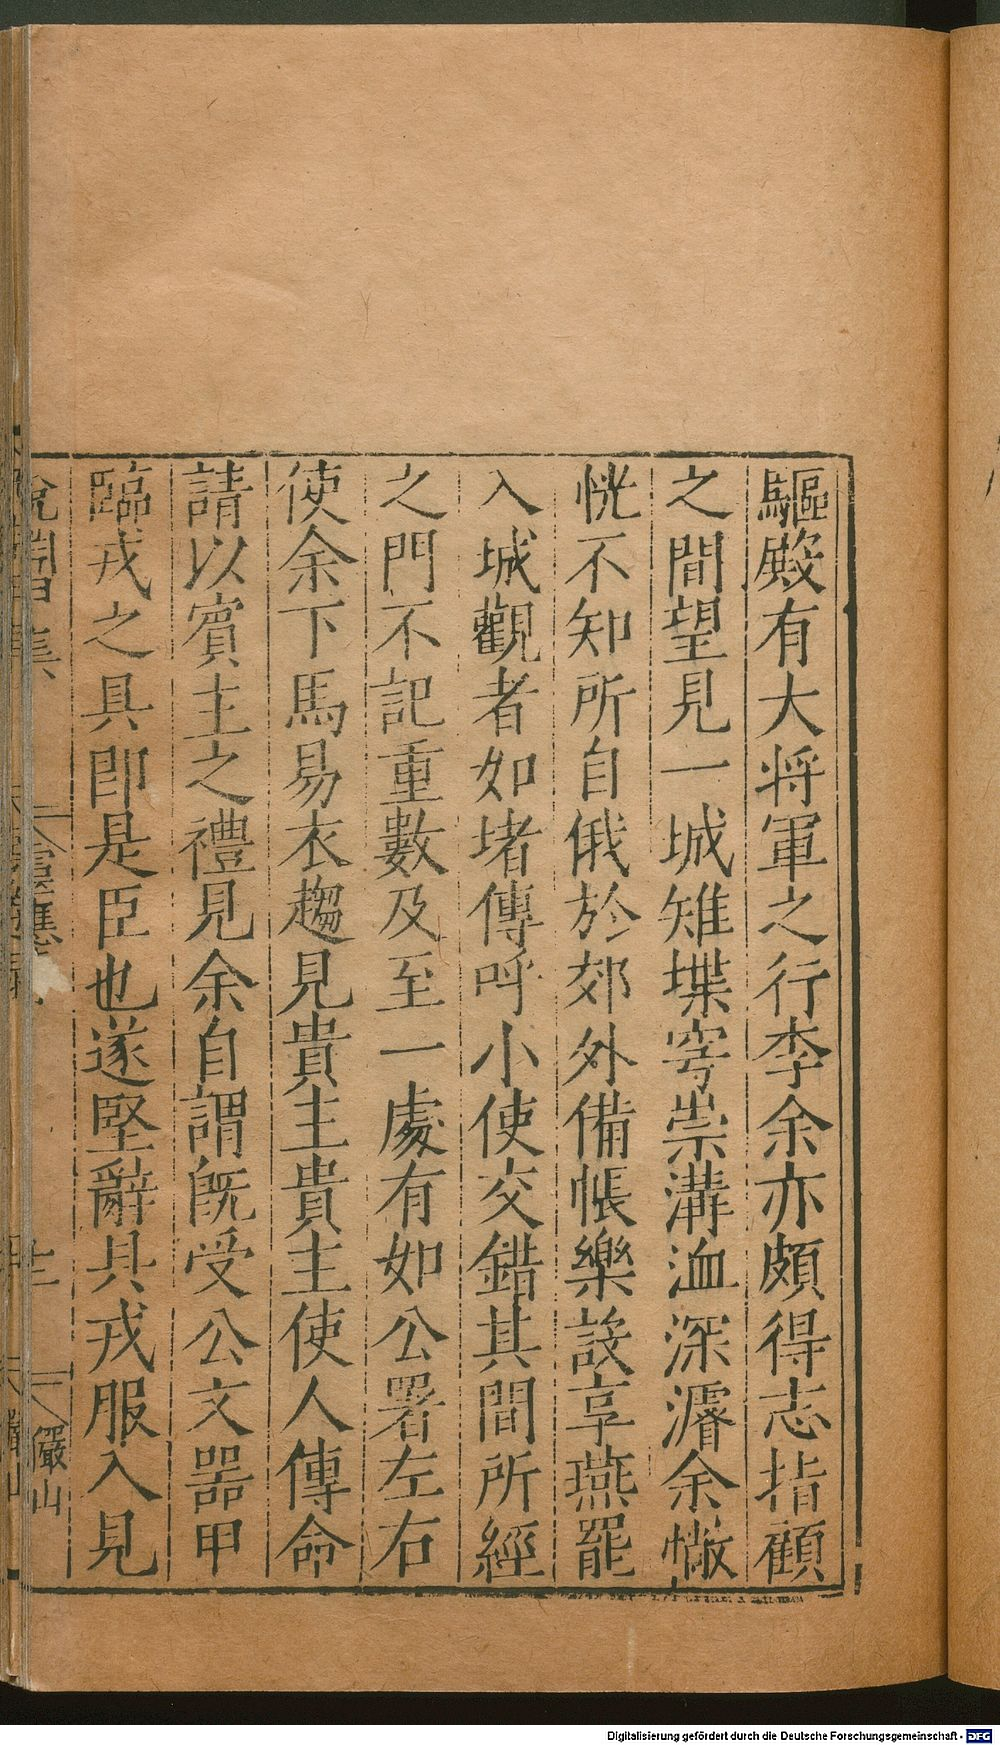 驅殿有大将軍之行李余亦頗得志指顧
之間望見一城雉堞穹崇溝洫深濬余惝
恍不知所自俄於郊外備帳樂設享燕罷
入城觀者如堵傳呼小使交錯其間所經
之門不記重數及至一處有如公署左右
使余下馬易衣趨見貴主貴主使人傳命
請以賓主之禮見余自謂旣受公文器甲
臨戎之具卽是臣也遂堅辭具戎服入見
說淵
靈應
十二
儼山
Digitalisierung gefördert durch die Deutsche Forschungsgemeinschaft - DFG